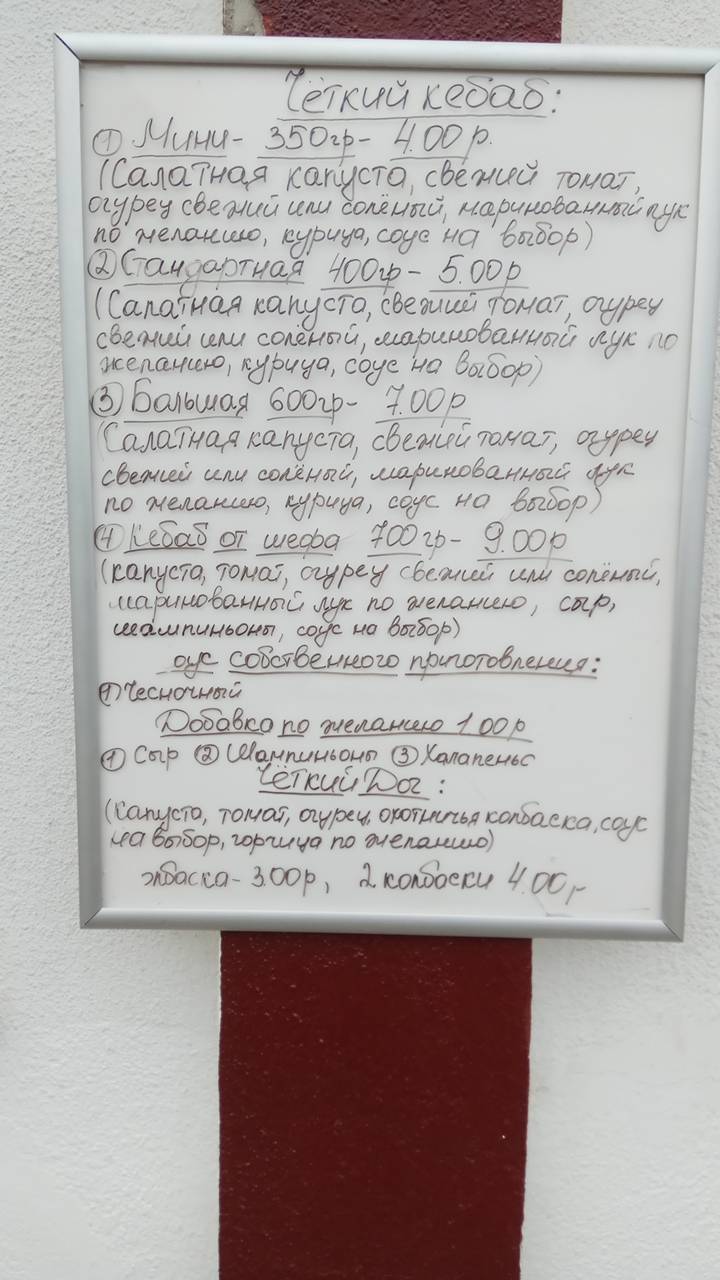 Чёткий кебаб:
① Мини - 350гр - 4.00 р.
(Салатная капуста, свежий томат,
огурец свежий или солёный, маринованный лук
по желанию, курица, соус на выбор)
② Стандартная 400гр - 5.00р
(Салатная капуста, свежий томат, огурец
свежий или солёный, маринованный лук по
желанию, курица, соус на выбор)
③ Большая 600гр - 7.00р
(Салатная капуста, свежий томат, огурец
свежий или солёный, маринованный лук
по желанию, курица, соус на выбор)
④ Кебаб от шефа 700гр - 9.00р
(капуста, томат, огурец свежий или солёный,
маринованный лук по желанию, сыр,
шампиньоны, соус на выбор)
оус собственного приготовления:
① Чесночный
Добавка по желанию 1 00р
① Сыр ② Шампиньоны ③ Халапеньо
Чёткий Дог:
(капуста, томат, огурец, охотничья колбаска, соус
на выбор, горчица по желанию)
олбаска - 3.00р, 2 колбаски 4.00р